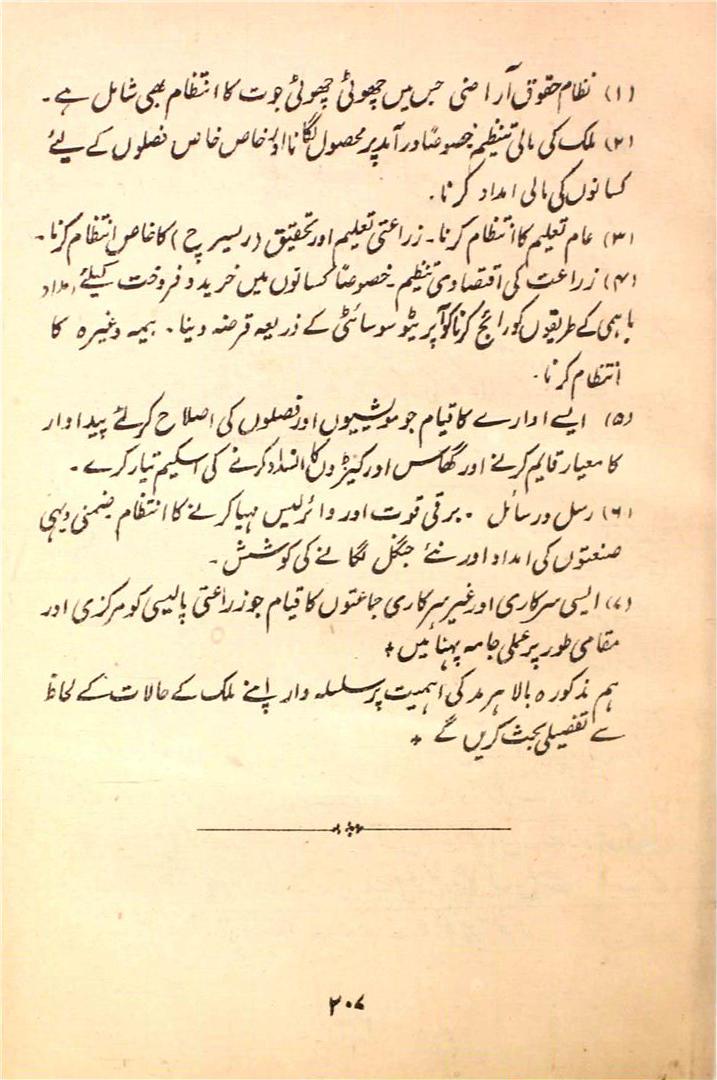 (۱) نظام حقوق آراضی جس میں چھوٹی چھوٹی جوت کا انتظام بھی شامل ہے۔
(۲) ملک کی مالی تنظیم خصوصاً درآمد پر محصول لگانا اور خاص خاص فصلوں کے لیئے
کسانوں کی مالی امداد کرنا۔
(۳) عام تعلیم کا انتظام کرنا۔ زراعتی تعلیم اور تحقیق (ریسیرچ) کا خاص انتظام کرنا۔
(۴) زراعت کی اقتصادی تنظیم۔ خصوصاً کسانوں میں خرید و فروخت کیلئے امداد
باہمی کے طریقوں کو رائج کرنا کوآپریٹو سوسائٹی کے ذریعہ قرضہ دینا۔ بیمہ وغیرہ کا
انتظام کرنا۔
(۵) ایسے ادارے کا قیام جو مویشیوں اور فصلوں کی اصلاح کرکے پیداوار
کا معیار قایم کرنے اور گھاس اور کیڑوں کا انسداد کرنے کی اسکیم تیار کرے۔
(۶) رسل و رسائل ۔ برقی قوت اور وائرلیس مہیا کرنے کا انتظام ضمنی دیہی
صنعتوں کی امداد اور نئے جنگل لگانے کی کوشش۔
(۷) ایسی سرکاری اور غیر سرکاری جماعتوں کا قیام جو زراعتی پالیسی کو مرکزی اور
مقامی طور پر عملی جامہ پہنائیں +
ہم مذکورہ بالا ہر مد کی اہمیت پر سلسلہ وار اپنے ملک کے حالات کے لحاظ
سے تفصیلی بحث کریں گے +
۲۰۷